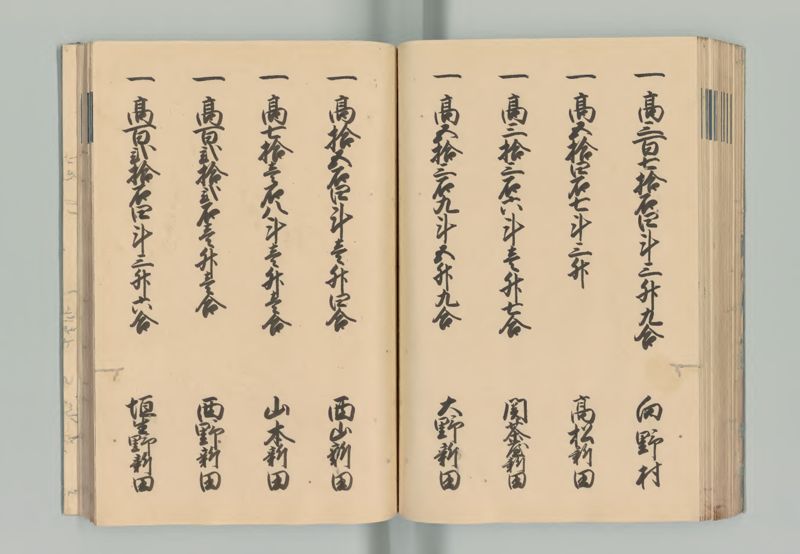 一 高三百七拾石四斗三升九合 向野村
一 高五拾四石七斗三升 高松新田
一 高三拾三石六斗壱升七合 関茶屋新田
一 高五拾三石九斗五升九合 大野新田
一 高拾五石四斗壱升四合 西山新田
一 高七拾壱石八斗壱升壱合 山本新田
一 高百弐拾弐石壱升壱合 西野新田
一 高百弐拾石四斗三升六合 垣生野新田